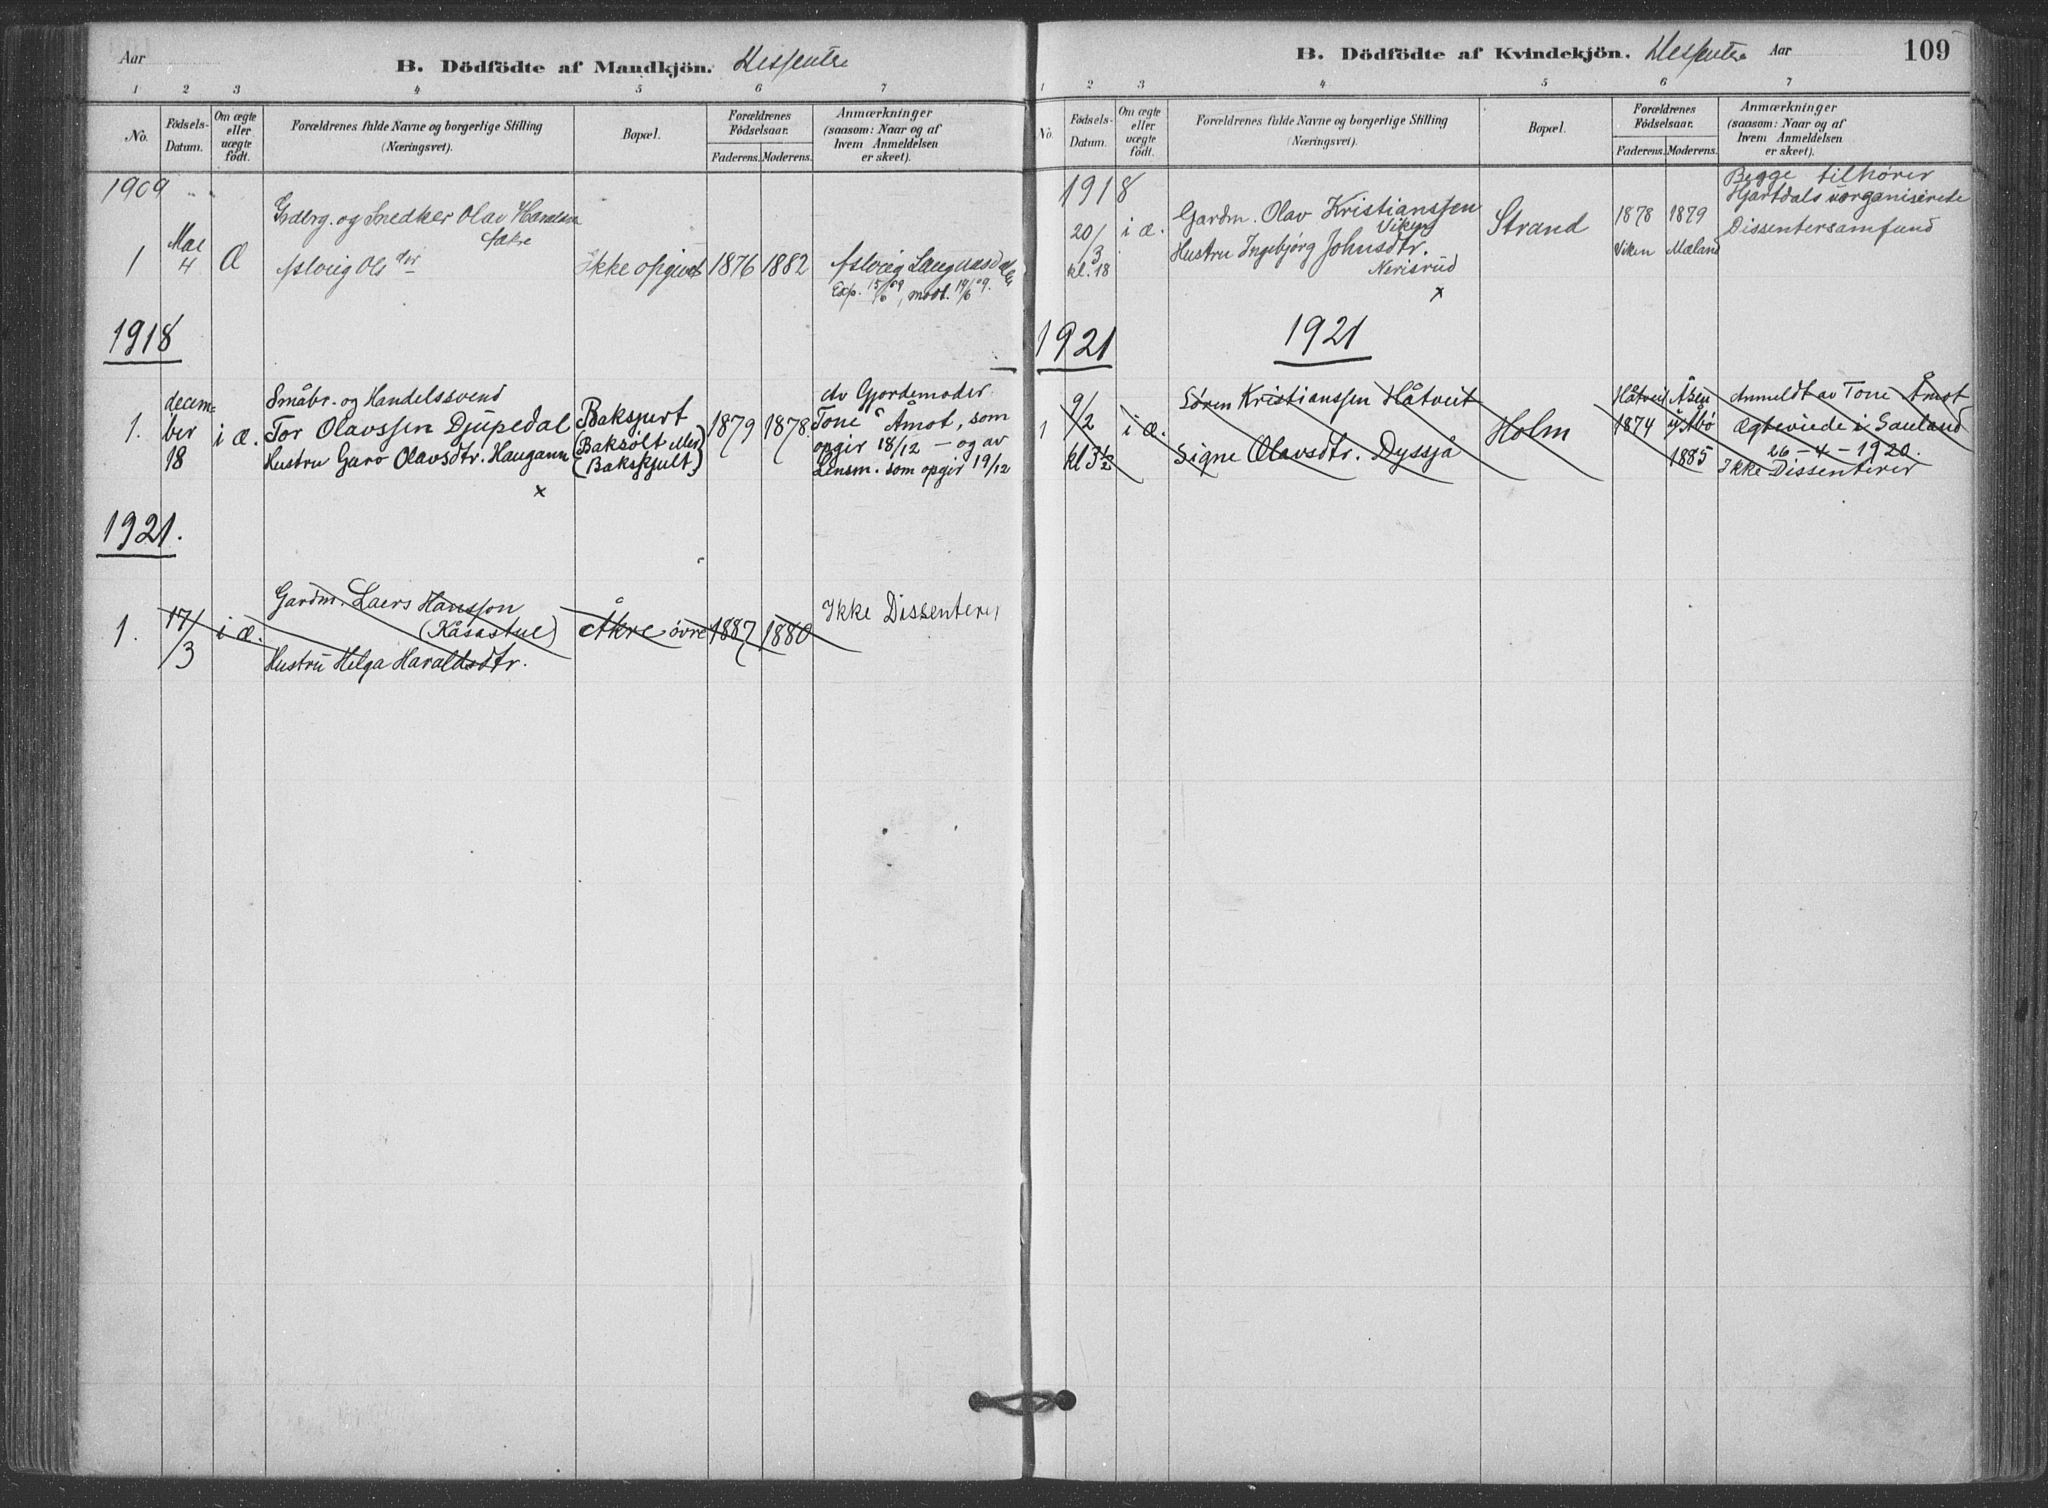 Aar
B. Dödfödte af Mandkjön.
1 2 3 4 5 6 7
No.
Födsels-
Datum.
Om ægte
eller
uægte
födt.
Forældrenes fulde Navne og borgerlige Stilling
(Næringsvei).
Bopæl.
Forældrenes
Födselsaar.
Faderens. Moderens.
Anmærkninger
(saasom: Naar og af
hvem Anmeldelsen
er skeet).
1909
1
Mai
4
Æ
Grdbrg. og Snedker Olav
Aslaug Ols dtr
Ikke opgivet
1876
1882
Aslaug
Exp. 15/6 09, modt. 19/6 09.
1918
1.
decem-
ber
18
i æ.
Småbr. og Handelssvend
Tor Olavssen Djupedal
Hustru Garo Olavsdtr. Haugann
x
Baksjurt
(Baksølt eller)
(Bakskjult)
1879
1878.
av Gjordemoder
Tone Åmot, som
opgir 18/12 – og av
Lensm. som opgir 19/12
1921.
1.
17/3
i æ.
Gardm. Laers Hansson
(Kåsastul)
Hustru Helga Haraldsdtr.
Åkre øvre
1887
1880
Ikke Dissenterer
B. Dödfödte af Kvindekjön.
Aar
109
1 2 3 4 5 6 7
No.
Födsels-
Datum.
Om ægte
eller
uægte
födt.
Forældrenes fulde Navne og borgerlige Stilling
(Næringsvei).
Bopæl.
Forældrenes
Födselsaar.
Faderens. Moderens.
Anmærkninger
(saasom: Naar og af
hvem Anmeldelsen
er skeet).
1918
20/3
kl. 18
i æ.
Gardm. Olav Kristianssen
Viken
Hustru Ingebjørg Johnsdtr.
Nerisrud
x
Strand
1878
Viken
1879
Mæland
Begge tilhører
Hjartdals uorganiserede
Dissentersamfund
1921
1921
1
9/2
kl 3½
i æ.
Søren Kristianssen Håtveit
Signe Olavsdtr. Dyssjå
Holm
Håtveit
1874
Åsen
1885
Anmeldt av Tone Åmot
Ægteviede i Sauland
26–4–1920.
Ikke Dissenterer